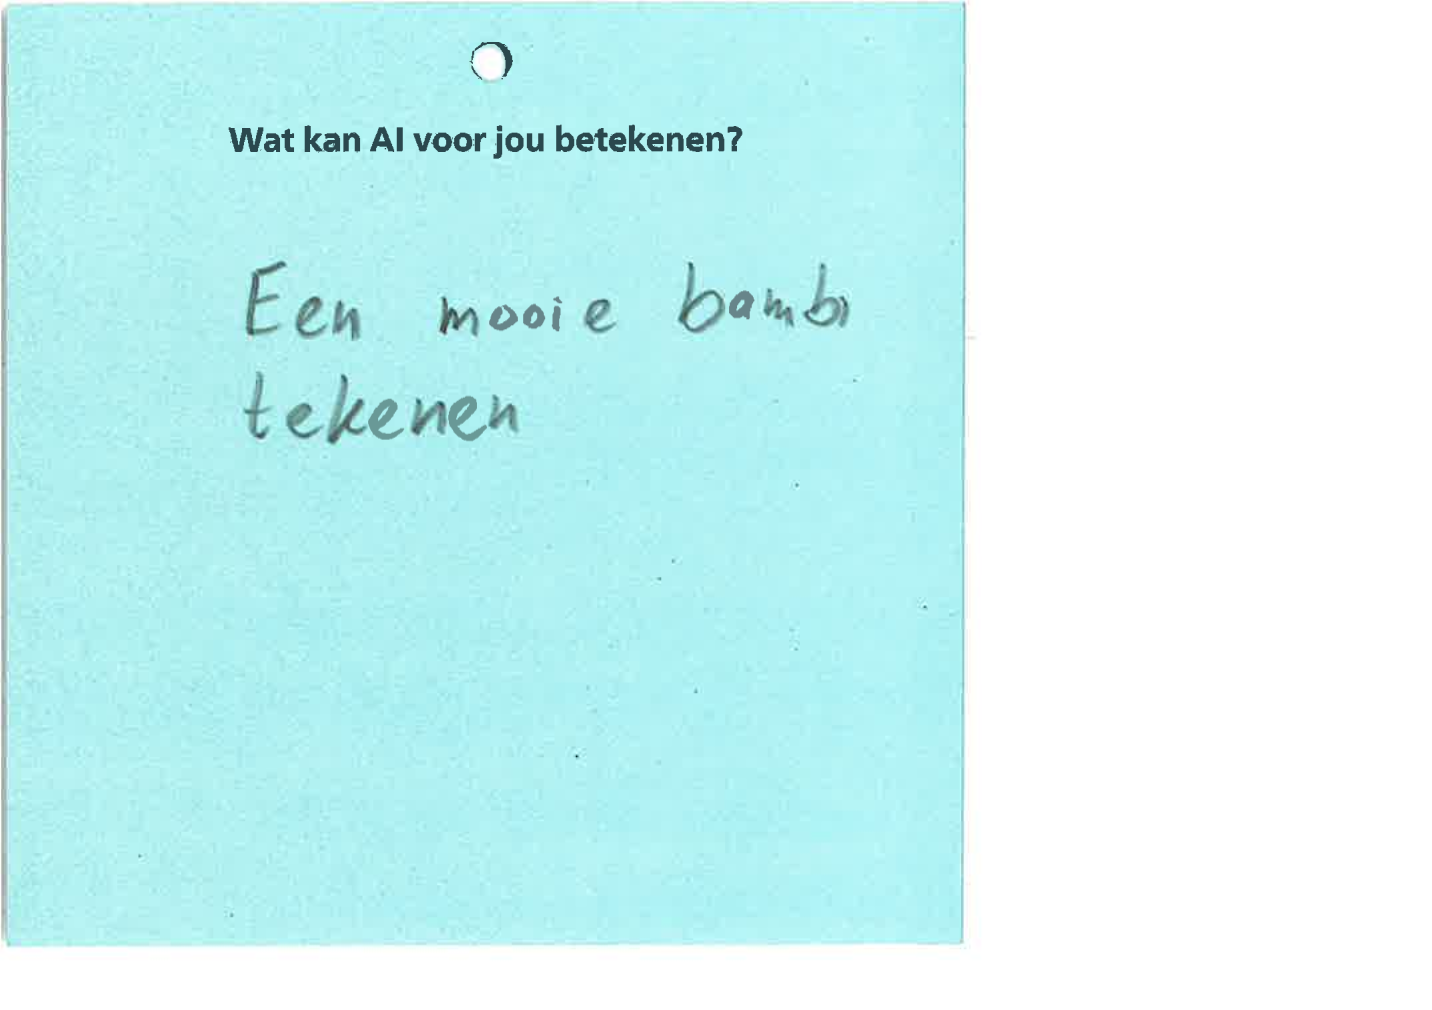 Wat kan AI voor jou betekenen?
Een mooie bambi
tekenen